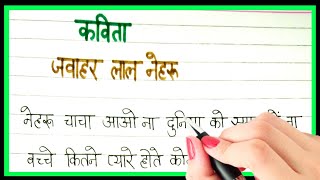 कविता
जवाहर लाल नेहरू
नेहरू चाचा आओ ना दुनिया को ना
बच्चे कितने प्यारे होते